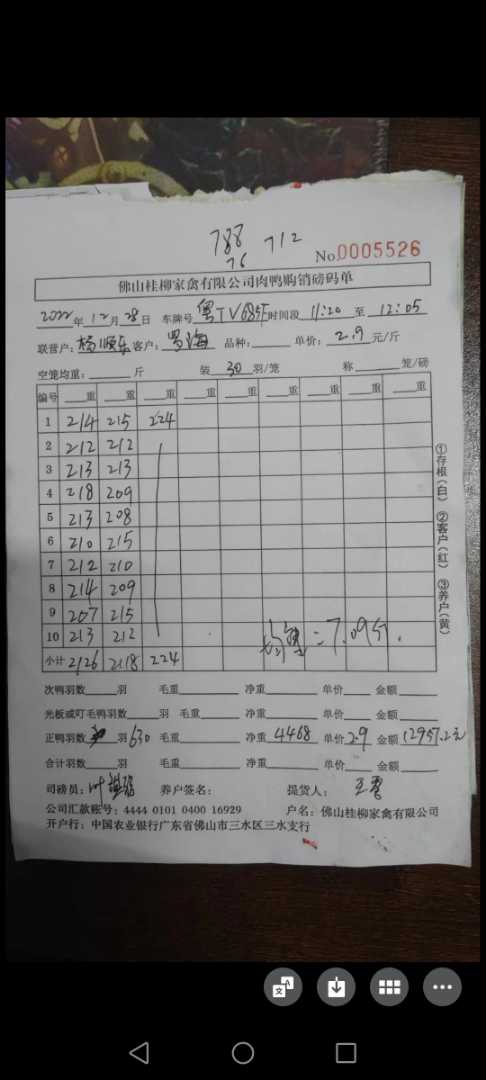 788 712
76
No.0005526
佛山桂柳家禽有限公司肉鸭购销磅码单
2022年12月28日 车牌号 粤TV685F 时间段 11:20 至 12:05
联营户:杨顺乐 客户:罗海 品种: 单价:2.9元/斤
空笼均重: 斤 装30羽/笼 称 笼/磅
编号 重 重 重 重 重 重 重 重 重
1 214 215 224
2 212 212
3 213 213
4 218 209
5 213 208
6 210 215
7 212 210
8 214 209
9 207 215
10 213 212
均重=7.09斤.
小计 2126 2118 224
①存根(白) ②客户(红) ③养户(黄)
次鸭羽数 羽 毛重 净重 单价 金额
光板或叮毛鸭羽数 羽 毛重 净重 单价 金额
正鸭羽数 羽 630 毛重 净重 4468 单价 2.9 金额 12957.2元
合计羽数 羽 毛重 净重 单价 金额
司磅员: 养户签名: 提货人:
公司汇款账号:4444 0101 0400 16929 户名:佛山桂柳家禽有限公司
开户行:中国农业银行广东省佛山市三水区三水支行